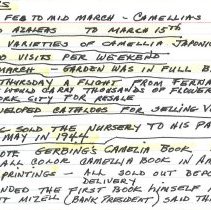 FEB TO MID MARCH - CAMELLIAS
AZALEAS TO MARCH 15TH
VARIETIES OF CAMELLIA JAPONI
VISITS PER WEEKEND
MARCH - GARDEN WAS IN FULL B
THURSDAY A FLIGHT FROM FERNA
WOULD CARRY THOUSANDS OF FLOWER
YORK CITY FOR RESALE
DEVELOPED CATALOGS FOR SELLING V
SOLD THE NURSERY TO HIS PA
IN MAY IN 1944
OTE GERBING'S CAMELIA BOOK
ALL COLOR CAMELLIA BOOK IN A
PRINTINGS - ALL SOLD OUT BEFO
DELIVERY
NDED THE FIRST BOOK HIMSELF A
T MIZELL (BANK PRESIDENT) SAID TH